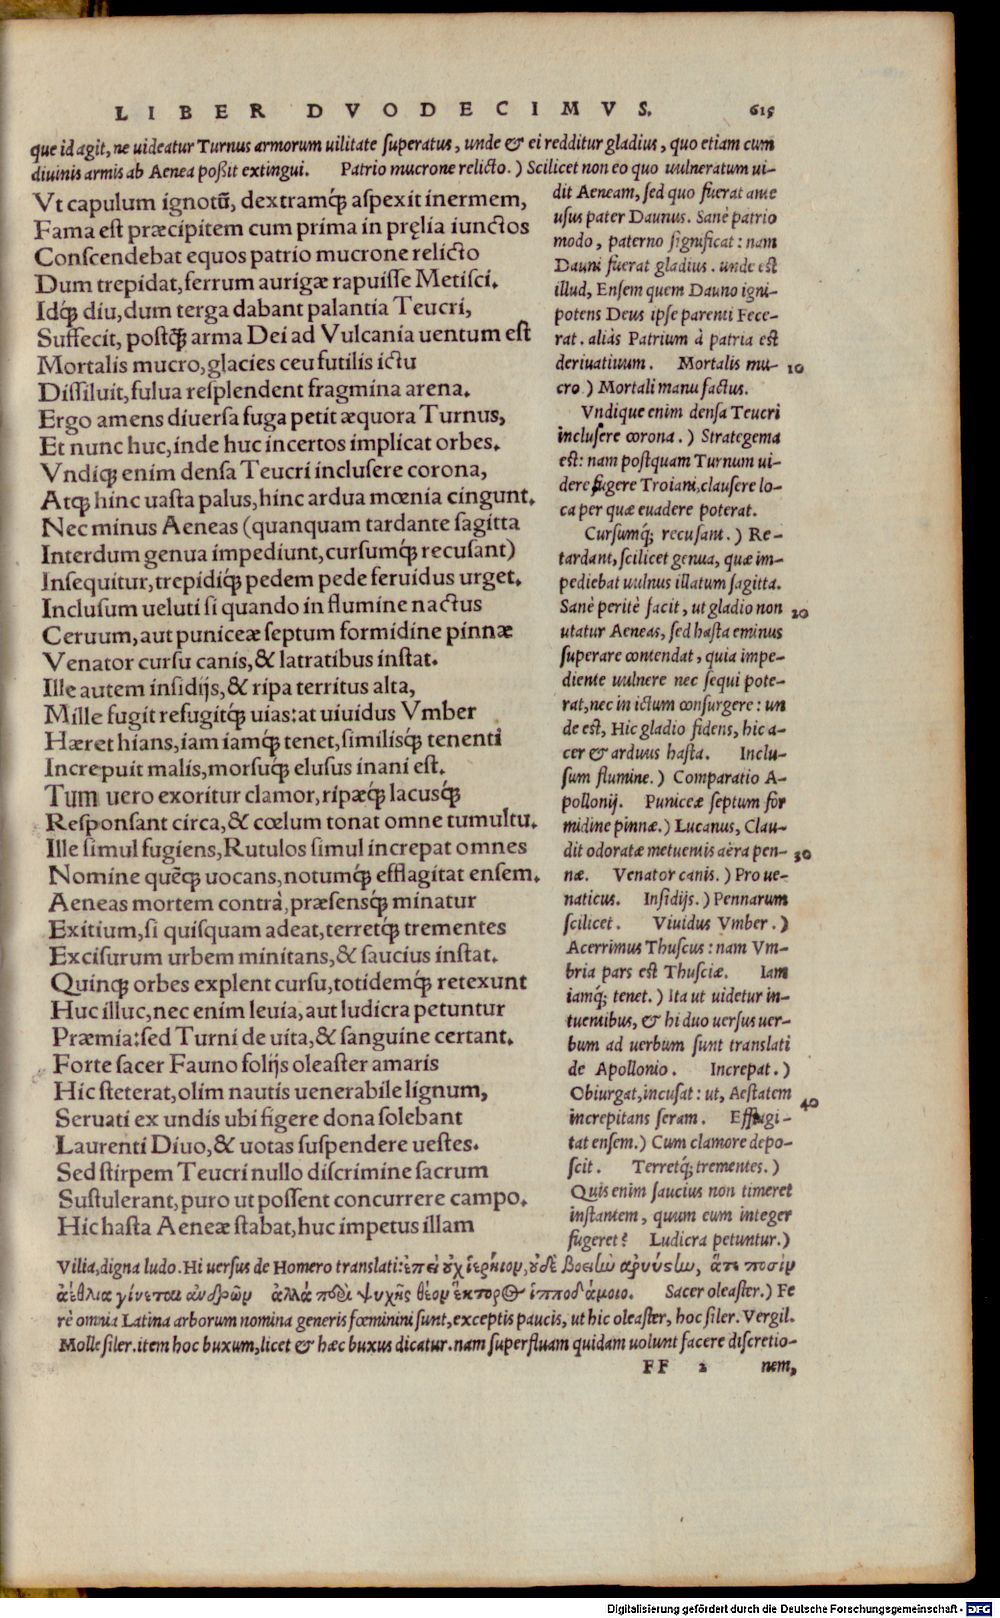 LIBER DVODECIMVS. 615
que id agit, ne uideatur Turnus armorum uilitate superatus, unde & ei redditur gladius, quo etiam cum
diuinis armis ab Aenea poßit extingui. Patrio mucrone relicto.) Scilicet non eo quo uulneratum ui-
Vt capulum ignotũ, dextramq́; aspexit inermem,
Fama est præcipitem cum prima in pręlia iunctos
Conscendebat equos patrio mucrone relicto
Dum trepidat, ferrum aurigæ rapuisse Metisci.
Idq́; diu, dum terga dabant palantia Teucri,
Suffecit, postq̃; arma Dei ad Vulcania uentum est
Mortalis mucro, glacies ceu futilis ictu
Dissiluit, fulua resplendent fragmina arena.
Ergo amens diuersa fuga petit æquora Turnus,
Et nunc huc, inde huc incertos implicat orbes.
Vndiq; enim densa Teucri inclusere corona,
Atq; hinc uasta palus, hinc ardua mœnia cingunt.
Nec minus Aeneas (quanquam tardante sagitta
Interdum genua impediunt, cursumq́; recusant)
Insequitur, trepidiq́; pedem pede feruidus urget.
Inclusum ueluti si quando in flumine nactus
Ceruum, aut puniceæ septum formidine pinnæ
Venator cursu canis, & latratibus instat.
Ille autem insidijs, & ripa territus alta,
Mille fugit refugitq́; uias: at uiuidus Vmber
Hæret hians, iam iamq́; tenet, similisq́; tenenti
Increpuit malis, morsuq́; elusus inani est.
Tum uero exoritur clamor, ripæq́; lacusq́;
Responsant circa, & cœlum tonat omne tumultu.
Ille simul fugiens, Rutulos simul increpat omnes
Nomine quẽq; uocans, notumq́; efflagitat ensem.
Aeneas mortem contrà, præsensq́; minatur
Exitium, si quisquam adeat, terretq́; trementes
Excisurum urbem minitans, & saucius instat.
Quinq; orbes explent cursu, totidemq́; retexunt
Huc illuc, nec enim leuia, aut ludicra petuntur
Præmia: sed Turni de uita, & sanguine certant.
Forte sacer Fauno folijs oleaster amaris
Hic steterat, olim nautis uenerabile lignum,
Seruati ex undis ubi figere dona solebant
Laurenti Diuo, & uotas suspendere uestes.
Sed stirpem Teucri nullo discrimine sacrum
Sustulerant, puro ut possent concurrere campo.
Hic hasta Aeneæ stabat, huc impetus illam
dit Aeneam, sed quo fuerat ante
usus pater Daunus. Sanè patrio
modo, paterno significat: nam
Dauni fuerat gladius. unde est
illud, Ensem quem Dauno igni-
potens Deus ipse parenti Fece-
rat. aliàs Patrium à patria est
deriuatiuum. Mortalis mu- 10
cro.) Mortali manu factus.
Vndique enim densa Teucri
inclusere corona.) Strategema
est: nam postquam Turnum ui-
dere fugere Troiani, clausere lo-
ca per quæ euadere poterat.
Cursumq́; recusant.) Re-
tardant, scilicet genua, quæ im-
pediebat uulnus illatum sagitta.
Sanè peritè facit, ut gladio non 20
utatur Aeneas, sed hasta eminus
superare contendat, quia impe-
diente uulnere nec sequi pote-
rat, nec in ictum consurgere: un
de est, Hic gladio fidens, hic a-
cer & arduus hasta. Inclu-
sum flumine.) Comparatio A-
pollonij. Puniceæ septum for
midine pinnæ.) Lucanus, Clau-
dit odoratæ metuentis aëra pen- 30
næ. Venator canis.) Pro ue-
naticus. Insidijs.) Pennarum
scilicet. Viuidus Vmber.)
Acerrimus Thuscus: nam Vm-
bria pars est Thusciæ. Iam
iamq́; tenet.) Ita ut uidetur in-
tuentibus, & hi duo uersus uer-
bum ad uerbum sunt translati
de Apollonio. Increpat.)
Obiurgat, incusat: ut, Aestatem
increpitans seram. Efflagi- 40
tat ensem.) Cum clamore depo-
scit. Terretq́; trementes.)
Quis enim saucius non timeret
instantem, quum eum integer
fugeret? Ludicra petuntur.)
Vilia, digna ludo. Hi uersus de Homero translati: ἐπεὶ οὐχ ἱερήϊον, οὐδὲ βοείω ἀρνύσθω, ἅτε ποσὶν
ἀέθλια γίνεται ἀνδρῶν ἀλλὰ περὶ ψυχῆς θέον ἕκτορος ἱπποδάμοιο. Sacer oleaster.) Fe
rè omnia Latina arborum nomina generis fœminini sunt, exceptis paucis, ut hic oleaster, hoc siler. Vergil.
Molle siler. item hoc buxum, licet & hæc buxus dicatur. nam superfluam quidam uolunt facere discretio-
FF 2 nem,
Digitalisierung gefördert durch die Deutsche Forschungsgemeinschaft - DFG